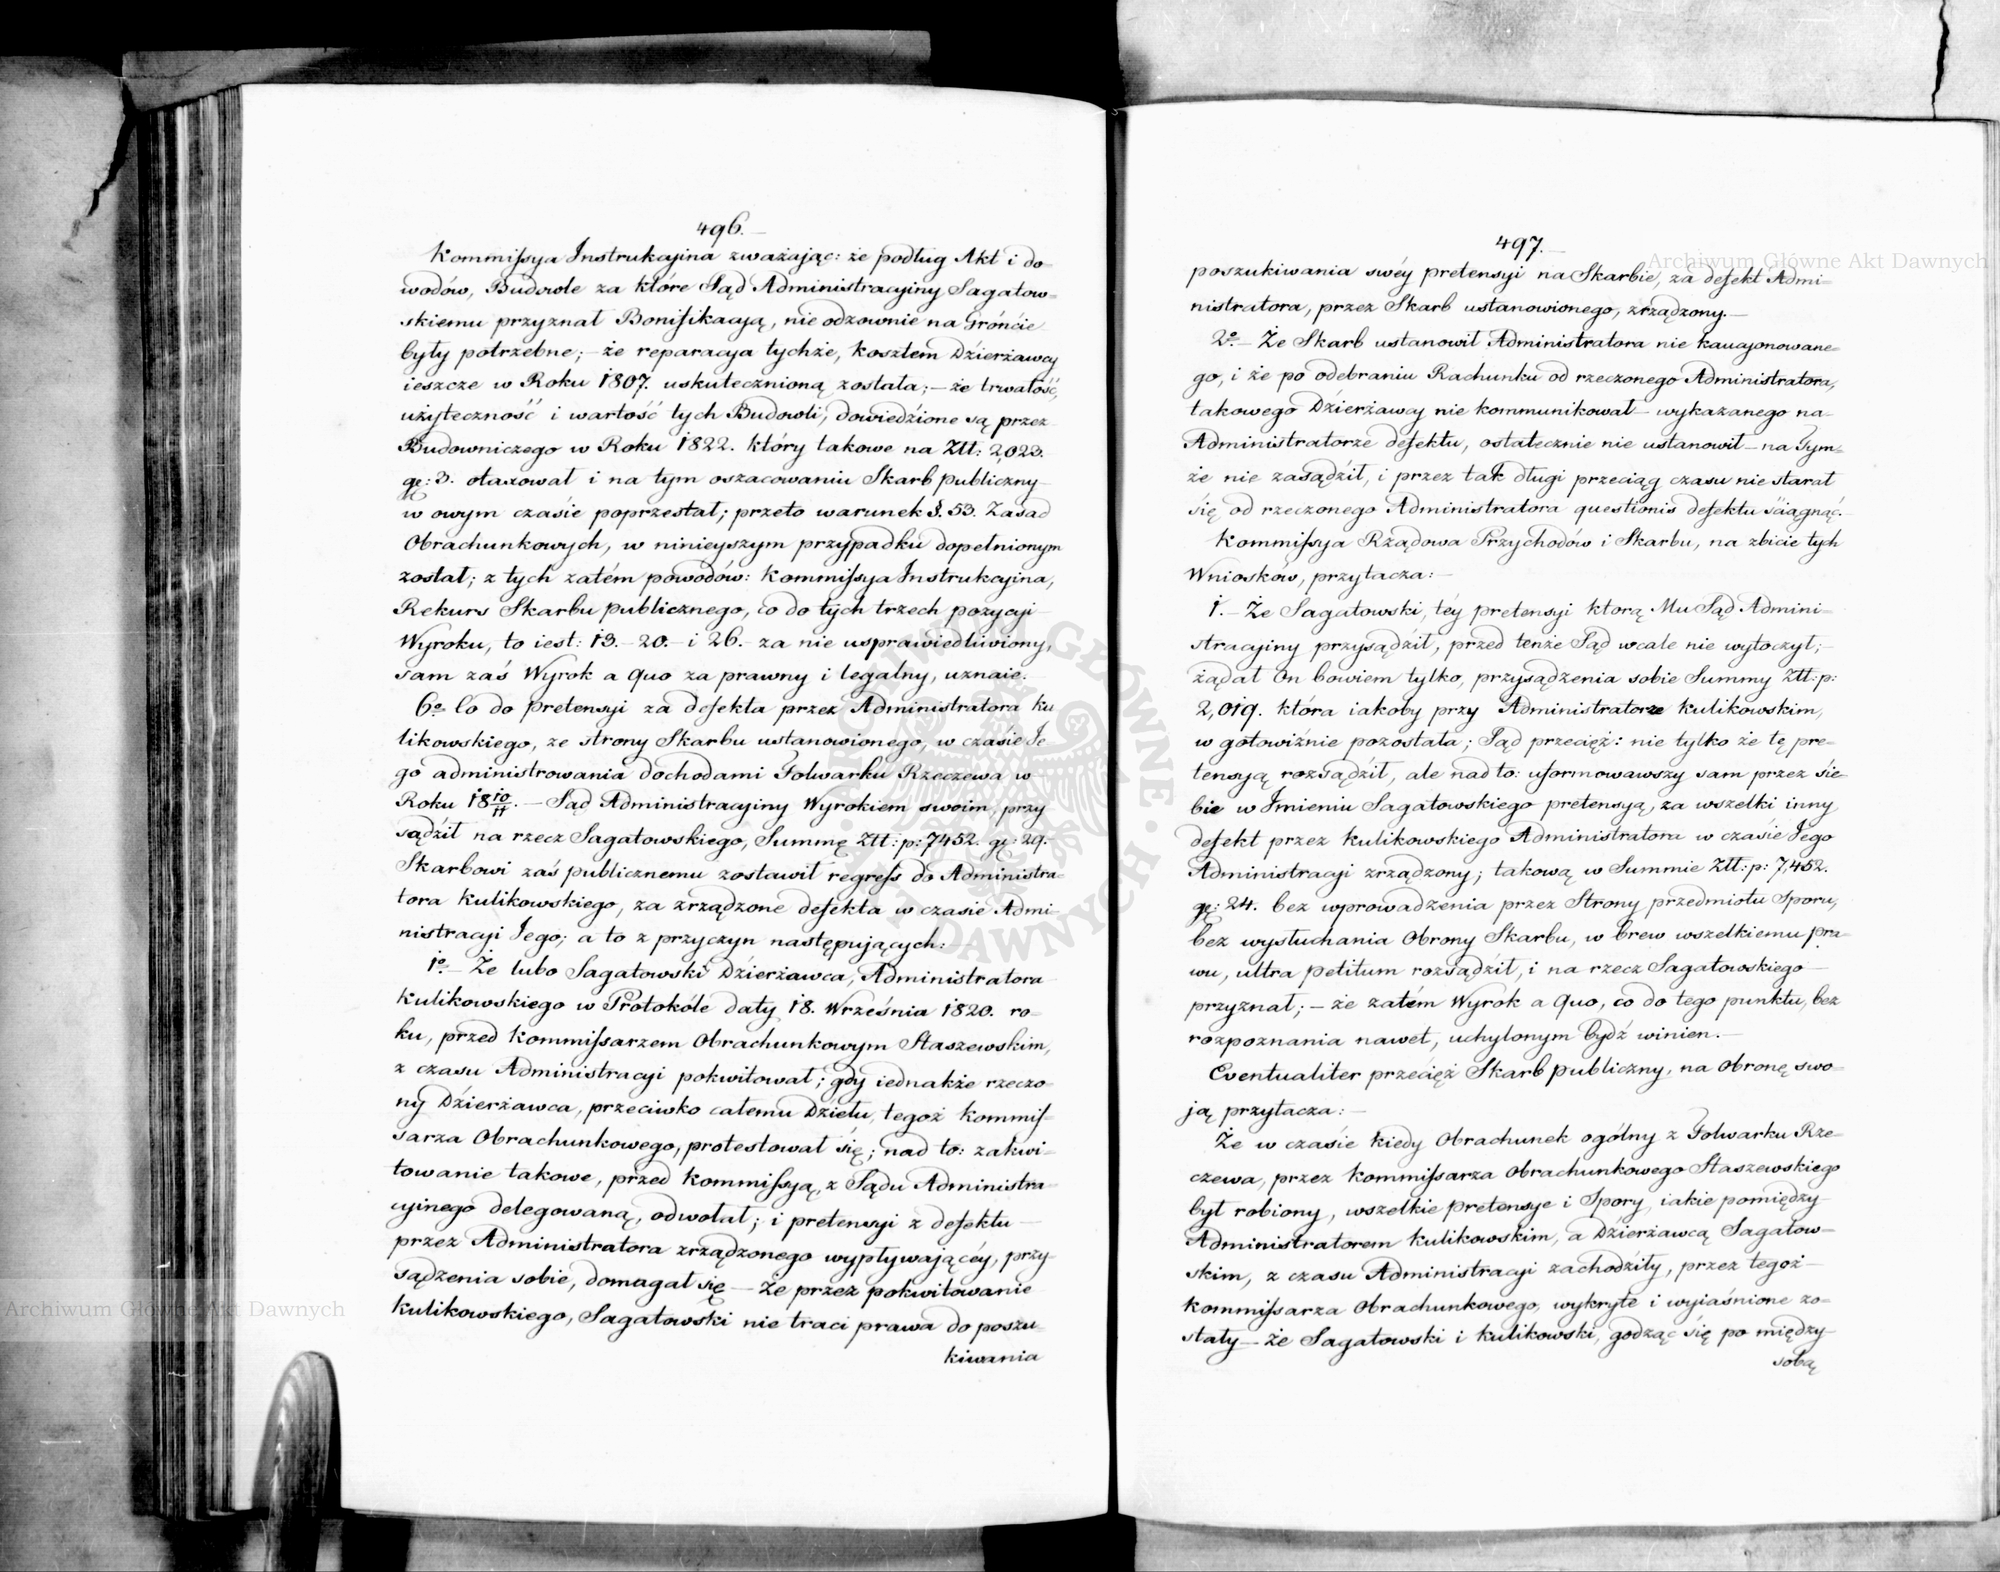 496.
Kommissya Instrukcyina zważając: że podług Akt i do=
wodów, Budowle za które Sąd Administracyiny Sagatow=
skiemu przyznał Bonifikacyą, nie odzownie na Gróncie
były potrzebne; – że reparacya tychże, kosztem Dzierżawcy
ieszcze w Roku 1807. uskutecznioną została; – że trwałość,
użyteczność i wartość tych Budowli, dowiedzione są przez
Budowniczego w Roku 1822. który takowe na Ztt: 2,022.
gę: 3. otaxował i na tym oszacowaniu Skarb publiczny
w owym czasie poprzestał; przeto warunek §. 53. Zasad
Obrachunkowych, w ninieyszym przypadku dopełnionym
został; z tych zatém powodów: Kommissya Instrukcyina,
Rekurs Skarbu publicznego, co do tych trzech pozycyi
Wyroku, to iest: 13. – 20. – i 26. – za nie usprawiedliwiony,
sam zaś Wyrok a quo za prawny i legalny, uznaie.
6o Co do pretensyi za defekta przez Administratora Ku
likowskiego, ze strony Skarbu ustanowionego, w czasie Je
go administrowania dochodami Folwarku Rzeczewa w
Roku 18 10/11. – Sąd Administracyiny Wyrokiem swoim, przy
sądził na rzecz Sagatowskiego, Summę Ztt: p: 7452. gę: 29.
Skarbowi zaś publicznemu zostawił regress do Administra=
tora Kulikowskiego, za zrządzone defekta w czasie Admi=
nistracyi Jego; a to z przyczyn następujących: –
1o – Że lubo Sagatowski Dzierżawca, Administratora
Kulikowskiego w Protokóle daty 18. Września 1820. ro=
ku, przed Kommissarzem Obrachunkowym Staszewskim,
z czasu Administracyi pokwitował; gdy iednakże rzeczo=
ny Dzierżawca, przeciwko całemu Dziełu, tegoż Kommis=
sarza Obrachunkowego, protestował się; nad to: zakwi=
towanie takowe, przed Kommissyą, z Sądu Administra=
cyinego delegowaną, odwołał; i pretensyi z defektu –
przez Administratora zrządzonego wypływającéy, przy=
sądzenia sobie, domagał się – Że przez pokwitowanie
Kulikowskiego, Sagatowski nie traci prawa do poszu=
kiwania
497.
poszukiwania swéy pretensyi na Skarbie, za defekt Admi=
nistratora, przez Skarb ustanowionego, zrządzony. –
2o – Że Skarb ustanowił Administratora nie kaucyonowane=
go, i że po odebraniu Rachunku od rzeczonego Administratora,
takowego Dzierżawcy nie kommunikował – wykazanego na
Administratorze defektu, ostatecznie nie ustanowił – na Tym=
że nie zasądził, i przez tak długi przeciąg czasu nie starał
się od rzeczonego Administratora questionis defektu ściągnąć.
Kommissya Rządowa Przychodów i Skarbu, na zbicie tych
Wniosków, przytacza: –
1. – Że Sagatowski, téy pretensyi którą Mu Sąd Admini=
stracyiny przysądził, przed tenże Sąd wcale nie wytoczył; –
żądał On bowiem tylko, przysądzenia sobie Summy Ztt: p:
2,019. która iakoby przy Administratorze Kulikowskim,
w gotowiźnie pozostała; Sąd przecięż: nie tylko że tę pre=
tensyą rozsądził, ale nad to: uformowawszy sam przez sie=
bie w Jmieniu Sagatowskiego pretensyą, za wszelki inny
defekt przez Kulikowskiego Administratora w czasie Jego
Administracyi zrządzony; takową w Summie Ztt: p: 7,452.
gę: 24. bez wprowadzenia przez Strony przedmiotu Sporu,
bez wysłuchania Obrony Skarbu, w brew wszelkiemu pra=
wu, ultra petitum rozsądził, i na rzecz Sagatowskiego –
przyznał; – że zatém Wyrok a Quo, co do tego punktu, bez
rozpoznania nawet, uchylonym bydź winien. –
Eventualiter przecięż Skarb publiczny, na Obronę swo=
ją przytacza: –
Że w czasie kiedy Obrachunek ogólny z Folwarku Rze=
czewa, przez Kommissarza Obrachunkowego Staszewskiego
był robiony, wszelkie pretensye i Spory, iakie pomiędzy
Administratorem Kulikowskim, a Dzierżawcą Sagatow=
skim, z czasu Administracyi zachodziły, przez tegoż –
Kommissarza Obrachunkowego, wykryte i wyiaśnione zo=
stały – że Sagatowski i Kulikowski, godząc się po między
sobą
Archiwum Główne Akt Dawnych
Archiwum Główne Akt Dawnych
ARCHIWUM GŁÓWNE AKT DAWNYCH